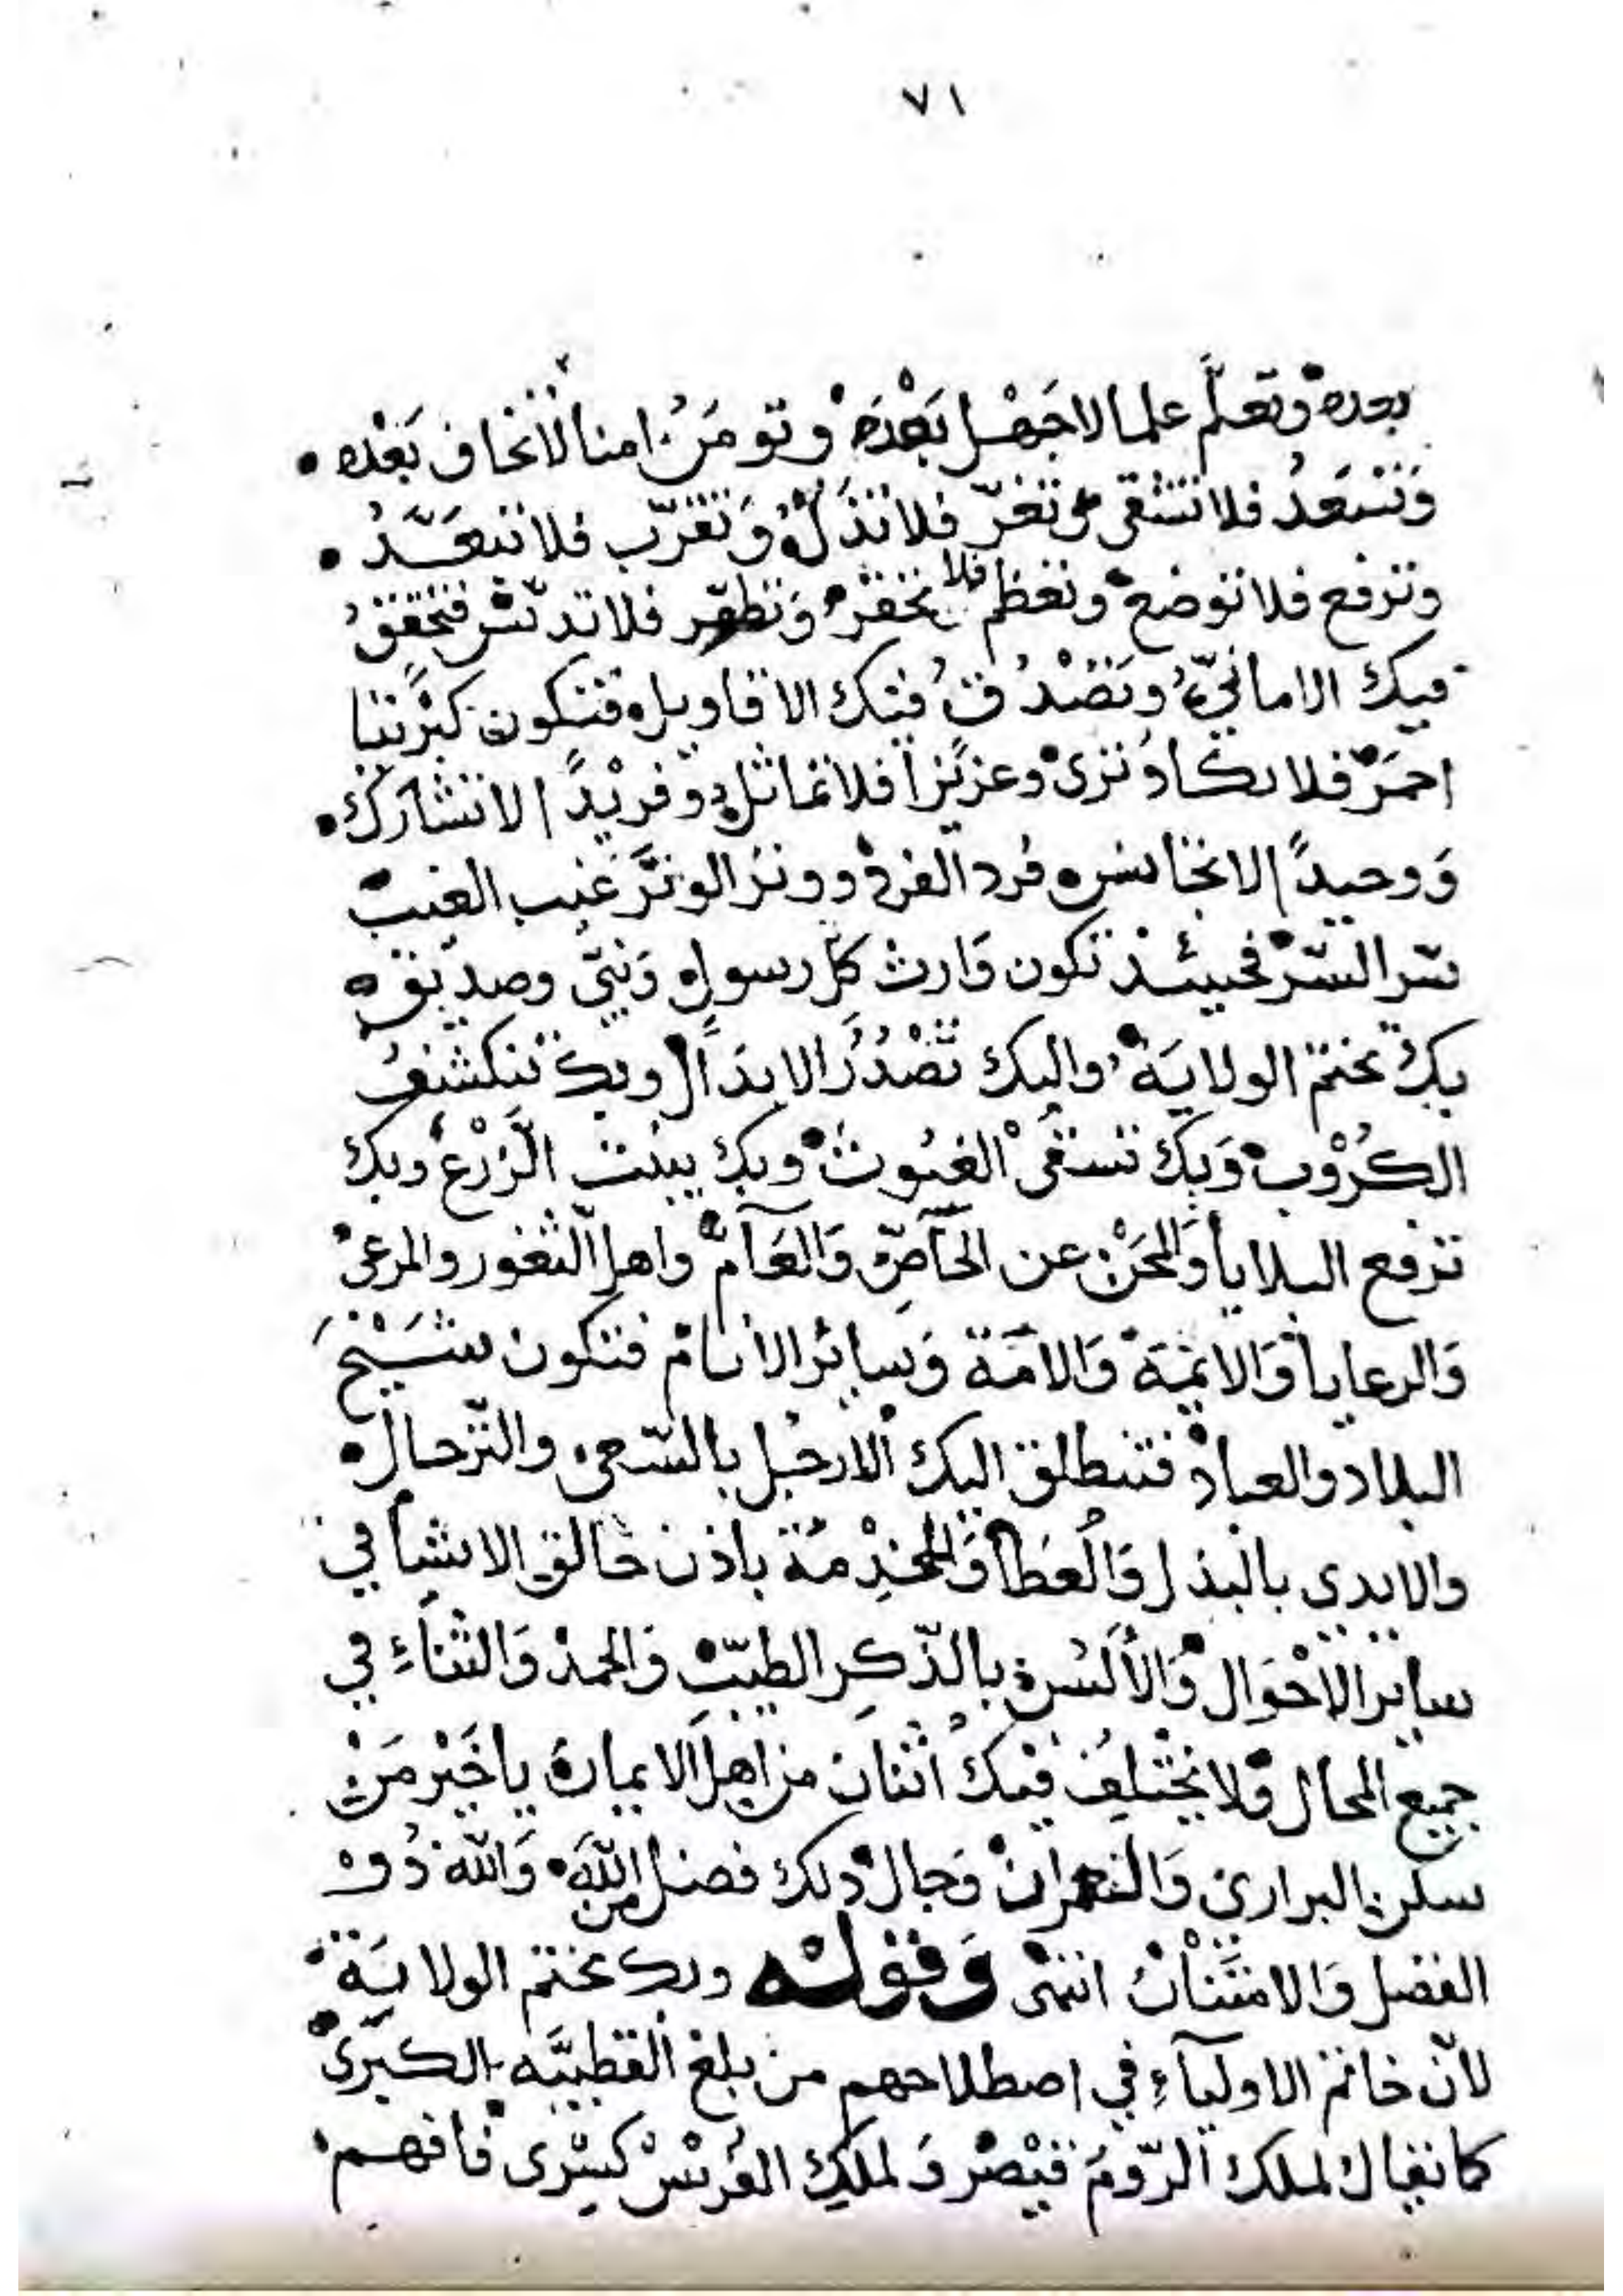 ٧١
بعده وتعلم علما لا جهل بعده وتومن امنا لا تخاف بعده •
وتسعد فلا تشقى وتعز فلا تذل وتقرب فلا تبعد •
وترفع فلا توضع وتعظم فلا تحقر وتطهر فلا تدنس فتحقق
فيك الاماني وتصدق فيك الاقاويل فتكون كبريتا
احمر فلا تكاد ترى وعزيزا فلا تماثل وفريدا لا تشارك •
ووحيدا لا تجانس فرد الفرد ووتر الوتر غيب الغيب
سر السر فحينئذ تكون وارث كل رسول ونبي وصديق
بك تختم الولاية واليك تصدر الابدال وبك تنكشف
الكروب وبك تسقى الغيوث وبك ينبت الزرع وبك
ترفع البلايا والمحن عن الخاص والعام واهل الثغور والمرعى
والرعايا والائمة والامة وسائر الانام فتكون شيخ
البلاد والعباد فتنطلق اليك الارجل بالسعي والترحال •
والايدى بالبذل والعطا والخدمة باذن خالق الاشيا في
ساير الاحوال والالسن بالذكر الطيب والحمد والثناء في
جميع المحال ولا يختلف فيك اثنان من اهل الايمان يا خير من
سكن البراري وجال ذلك فضل الله والله ذو
الفضل والامتنان انتهى وقوله وبك تختم الولاية
لان خاتم الاولياء في اصطلاحهم من بلغ القطبية الكبرى
كما يقال لملك الروم قيصر ولملك الفرس كسرى فافهم